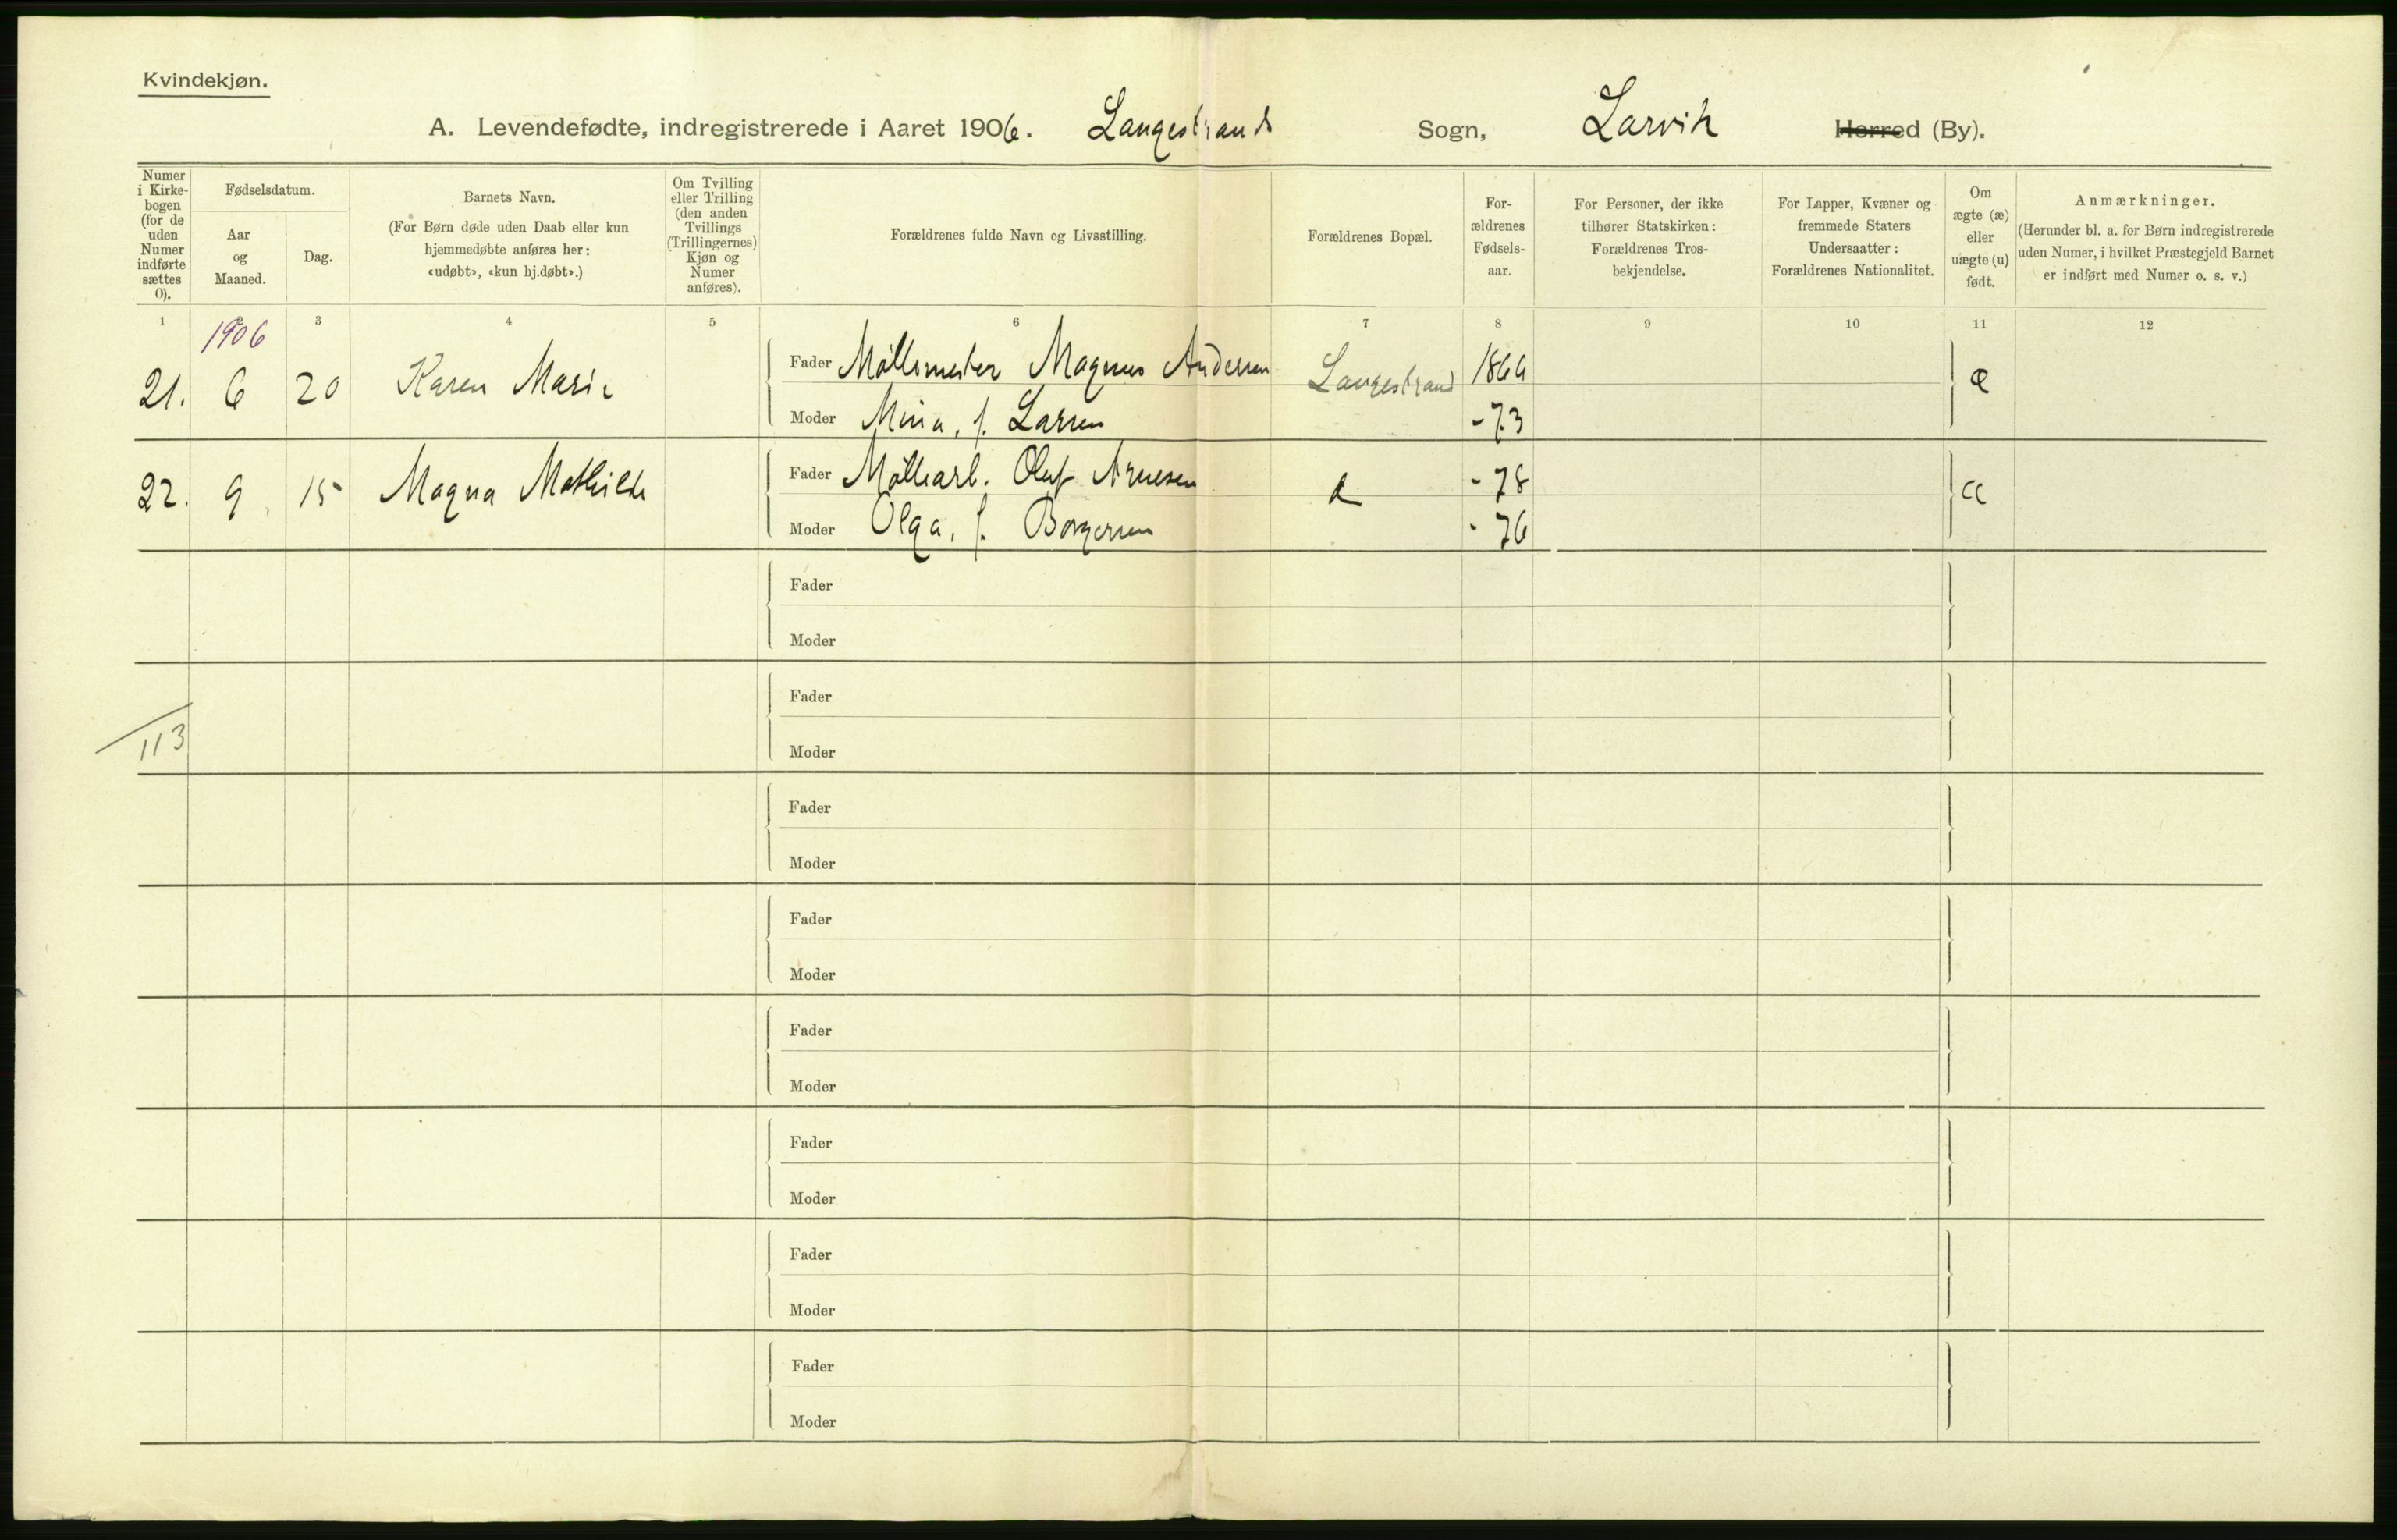 Kvindekjøn.
A. Levendefødte, indregistrerede i Aaret 1906. Langestrands Sogn, Larvik Herred (By).
Numer i Kirkebogen (for de uden Numer indførte sættes 0).
Fødselsdatum.
Aar og Maaned.
Dag.
Barnets Navn.
(For Børn døde uden Daab eller kun hjemmedøbte anføres her: «udøbt», «kun hj.døbt».)
Om Tvilling eller Trilling (den anden Tvillings (Trillingernes) Kjøn og Numer anføres).
Forældrenes fulde Navn og Livsstilling.
Forældrenes Bopæl.
Forældrenes Fødselsaar.
For Personer, der ikke tilhører Statskirken: Forældrenes Trosbekjendelse.
For Lapper, Kvæner og fremmede Staters Undersaatter: Forældrenes Nationalitet.
Om ægte (æ) eller uægte (u) født.
Anmærkninger.
(Herunder bl. a. for Børn indregistrerede uden Numer, i hvilket Præstegjeld Barnet er indført med Numer o. s. v.)
1 2 3 4 5 6 7 8 9 10 11 12
1906
21. 6 20 Karen Marie Fader Møllemester Magnus Andersen Langestrand 1866 æ
Moder Mina, f. Larsen -73
22. 9. 15 Magna Mathilde Fader Møllearb. Oluf Arnesen - 78 æ
Moder Olga, f. Borgersen - 76
Fader
Moder
Fader
113
Moder
Fader
Moder
Fader
Moder
Fader
Moder
Fader
Moder
Fader
Moder
Fader
Moder